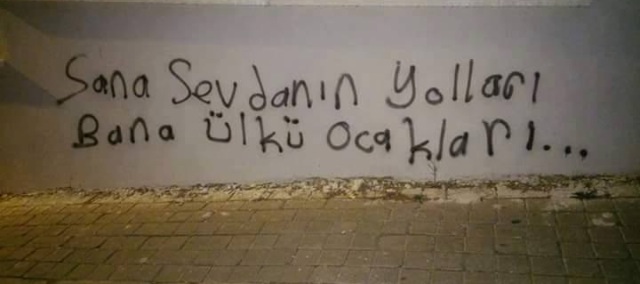 Sana Sevdanın Yolları
Bana Ülkü Ocakları...